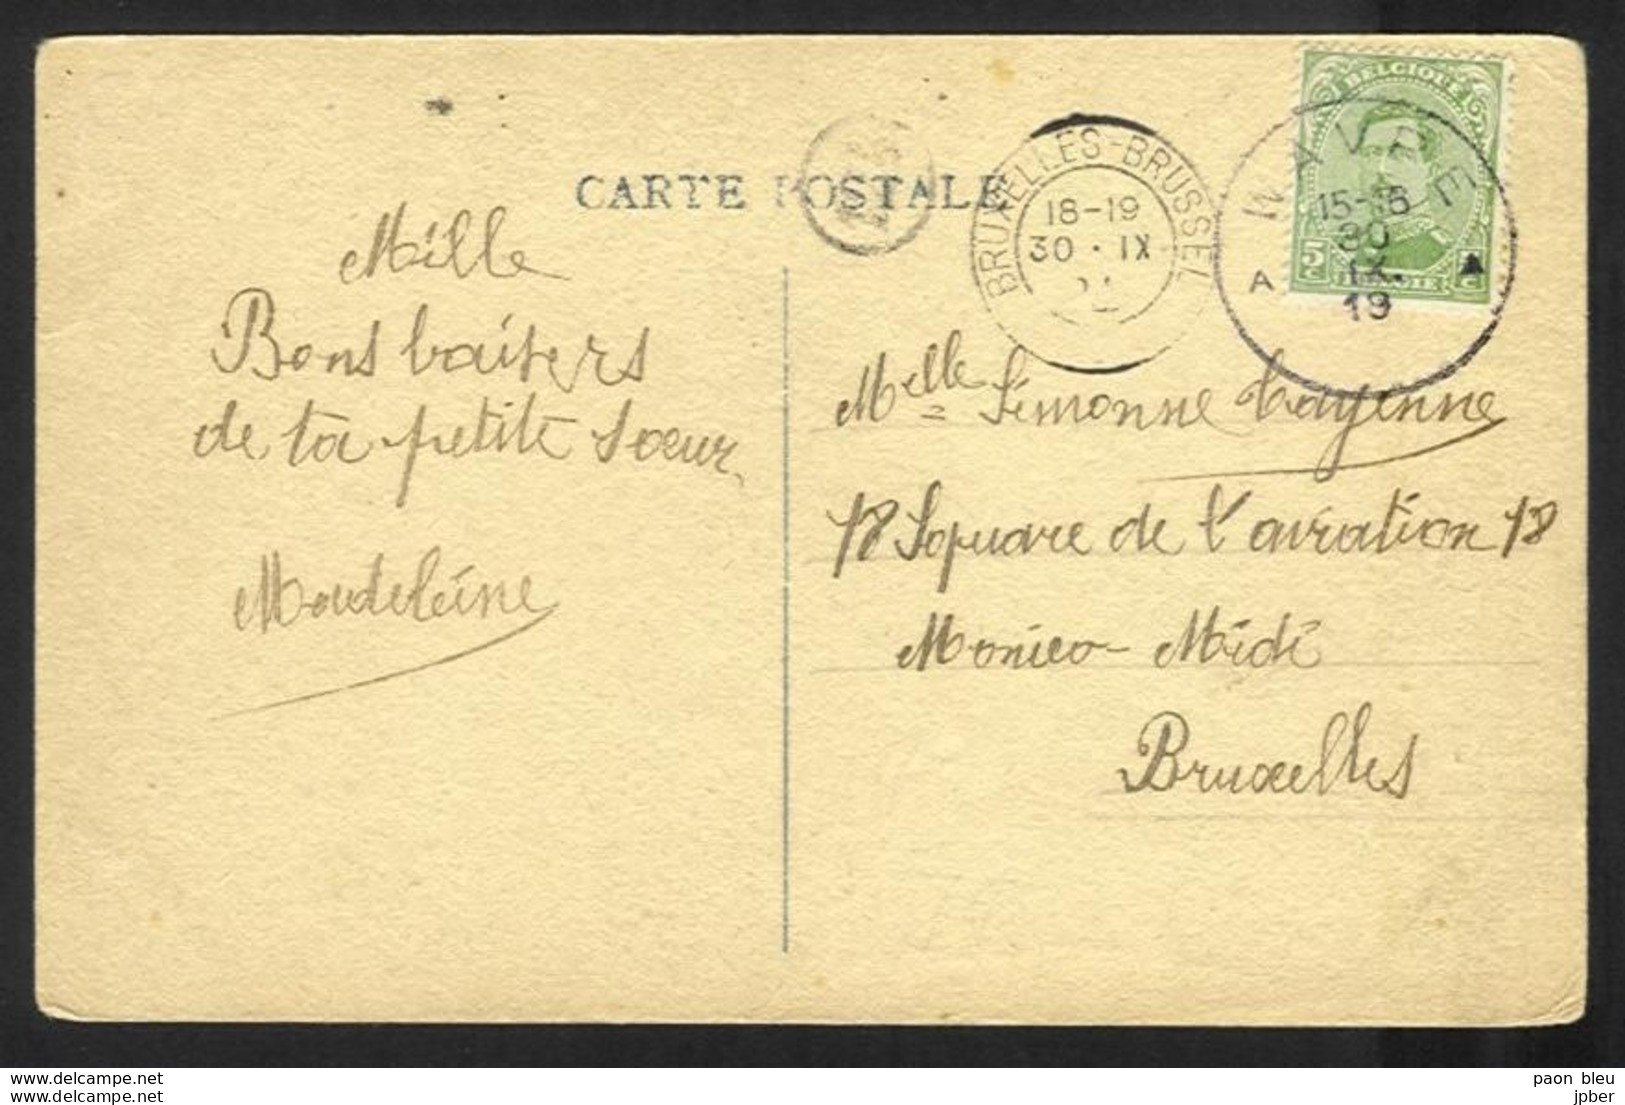 CARTE POSTALE
BRUXELLES-BRUSSEL
18-19
30 · IX
WAVRE
15-16
30
IX.
19
A
BELGIQUE
5c
BELGIË
Mille
Bons baisers
de ta petite soeur
Madeleine
Melle Simonne Cayenne
18 Square de l'aviation 18
Monico - Midi
Bruxelles
www.delcampe.net
paon bleu
jpber